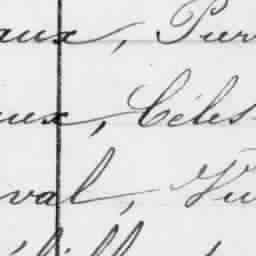 aux, Pier
aux, Céles
val, Vi